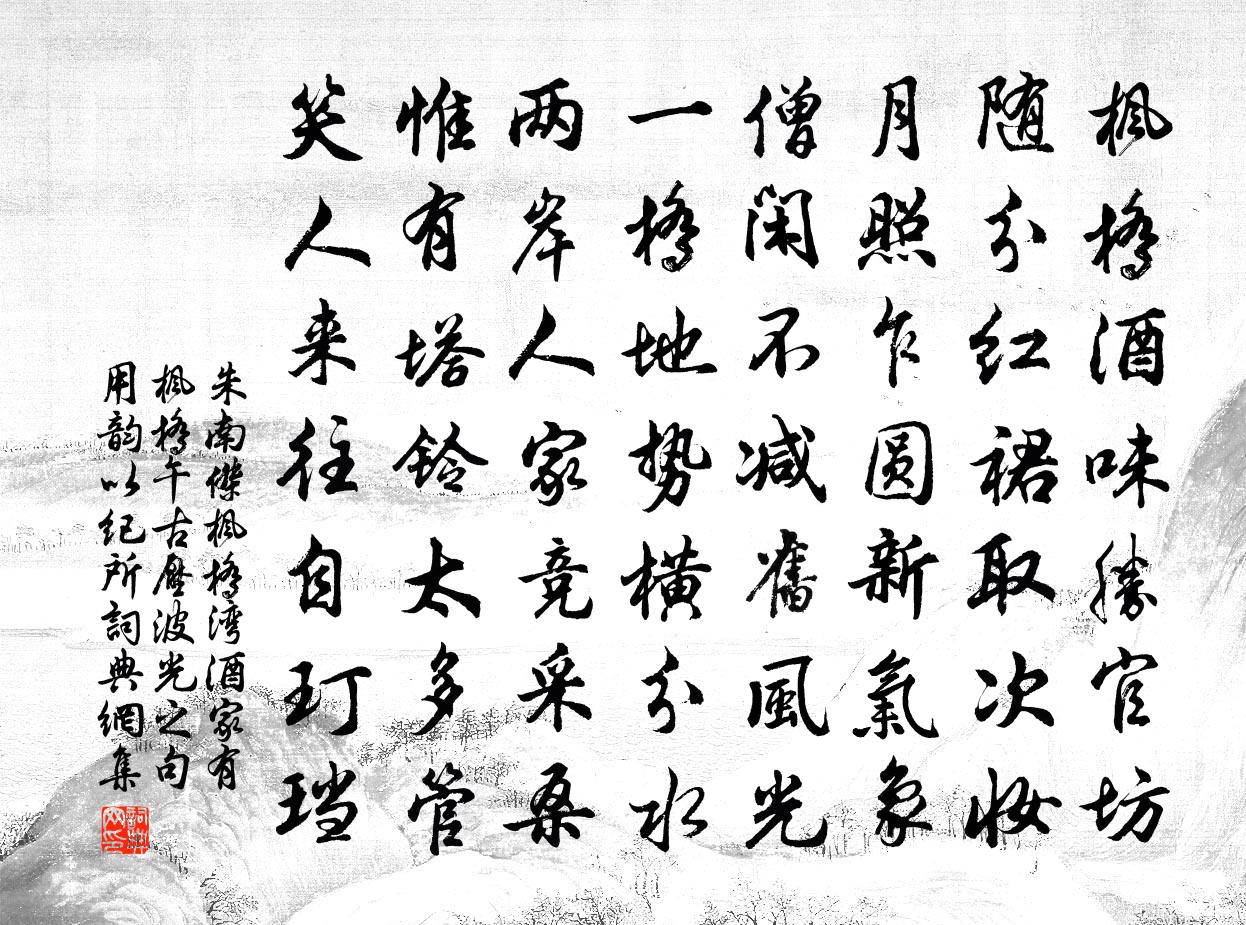 枫橋酒味勝官坊
随分红裙取次妝
月照乍圆新氣象
僧闲不减舊風光
一橋地势横分水
两岸人家竞采桑
惟有塔铃太多管
笑人来往自玎珰
朱南傑枫橋湾酒家有
枫橋午古壓波光之句
用韵以纪所詞典網集